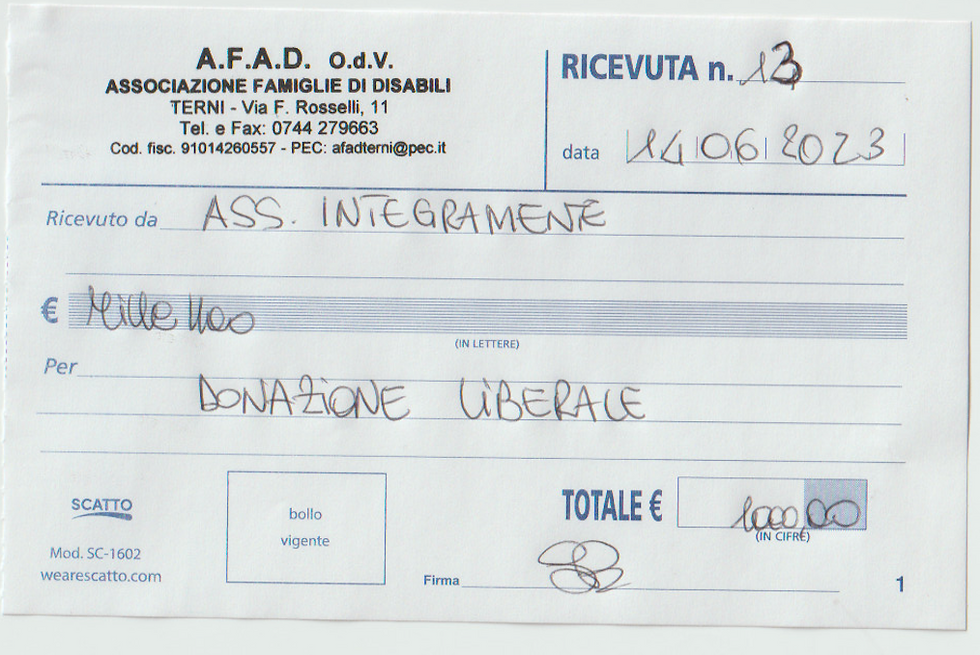 A.F.A.D. O.d.V.
ASSOCIAZIONE FAMIGLIE DI DISABILI
TERNI - Via F. Rosselli, 11
Tel. e Fax: 0744 279663
Cod. fisc. 91014260557 - PEC: afadterni@pec.it
RICEVUTA n. 13
data 14 06 2023
Ricevuto da ASS. INTEGRAMENTE
€ Mille
(IN LETTERE)
Per
DONAZIONE LIBERALE
SCATTO
Mod. SC-1602
wearescatto.com
bollo
vigente
TOTALE € 1000,00
(IN CIFRE)
Firma
1